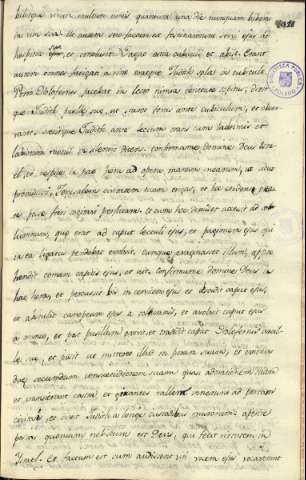 bibitque vinum multum nimis quantum una die numquam biberat
in vita sua. Ut autem sero factum est festinaverunt servi ejus ad
hospitia sua, et conclusit Vagao ostia cubiculi et abiit. Erant
autem omnes a vino eratque Judith sola in cubiculo
Porro Holofernes jacebat in lecto nimia ebrietate sopitus, dixit-
que Judith puellæ suæ, ut staret foris ante cubiculum, et obser-
varet: stetitque Judith ante lectum orans cum lacrimis et
labiorum motu in silentio dicens. confirma me Domine Deus Isra-
el, et respice in hac hora ad opera manuum mearum, ut sicut
promisisti, Jerusalem civitatem tuam erigas, et hoc credens per
te posse fieri cogitavi perficiam. et cum hoc dixisset accessit ad co-
lumnam, quæ erat ad caput lectuli ejus, et pugionem ejus qui
in ea ligatus pendebat exolvit. cumque evaginasset illum, appre-
hendit comam capitis ejus, et ait. confirma me domine Deus in
hac hora, et percussit bis in cervicem ejus et abscidit caput ejus,
et abstulit conopeum ejus a columnis, et evolvit corpus ejus
et post pusillum exivit, et tradidit caput Holofernis ancil-
læ suæ, et jussit ut mitteret illud in peram suam, et exierunt
duæ secundum consuetudinem suam quasi ad orationem
et transierunt castra et girantes vallem venerunt ad portam
civitatis, et dixit Judith a longe custodibus murorum: aperite
portas quoniam nobiscum est Deus, qui fecit virtutem in
Israel. Et factum est cum audissent viri vocem ejus vocaverunt